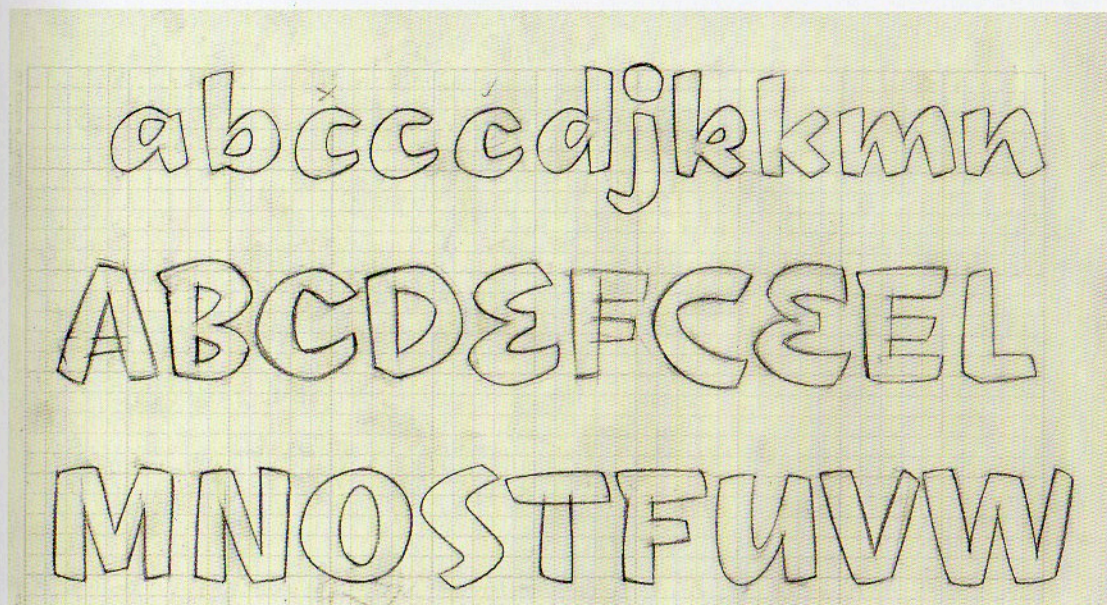 abcccdjkkmn
ABCDEFCEEL
MNOSTFUVW